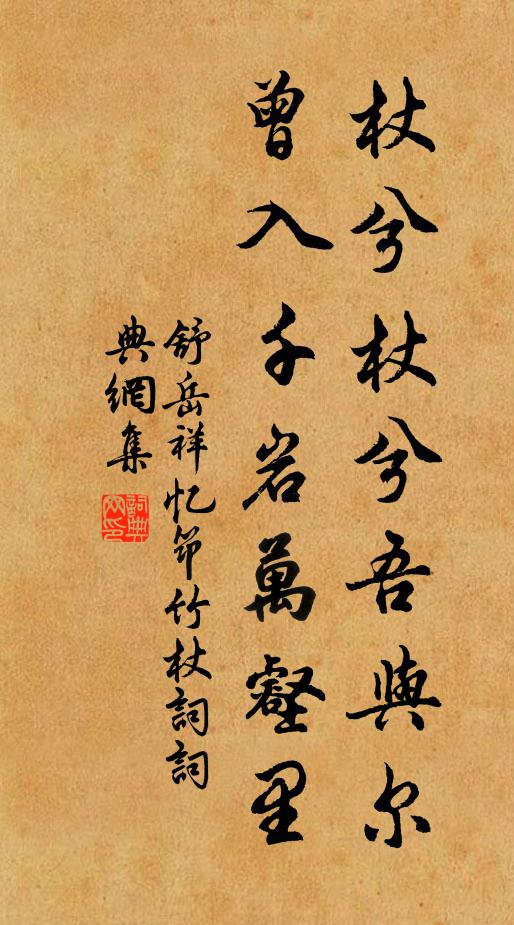 杖兮杖兮吾與尔
曾入千岩萬壑里
舒岳祥忆笻竹杖詞詞
典網集
詞典網印